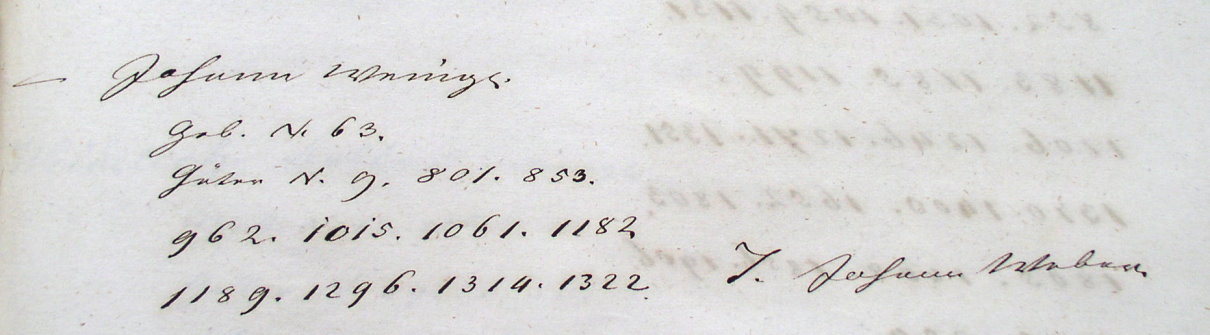 Johann Weinge.
Geb. N. 63.
Güter N. 9. 801. 853.
962. 1015. 1061. 1182
1189. 1296. 1314. 1322.
J. Johann Weber